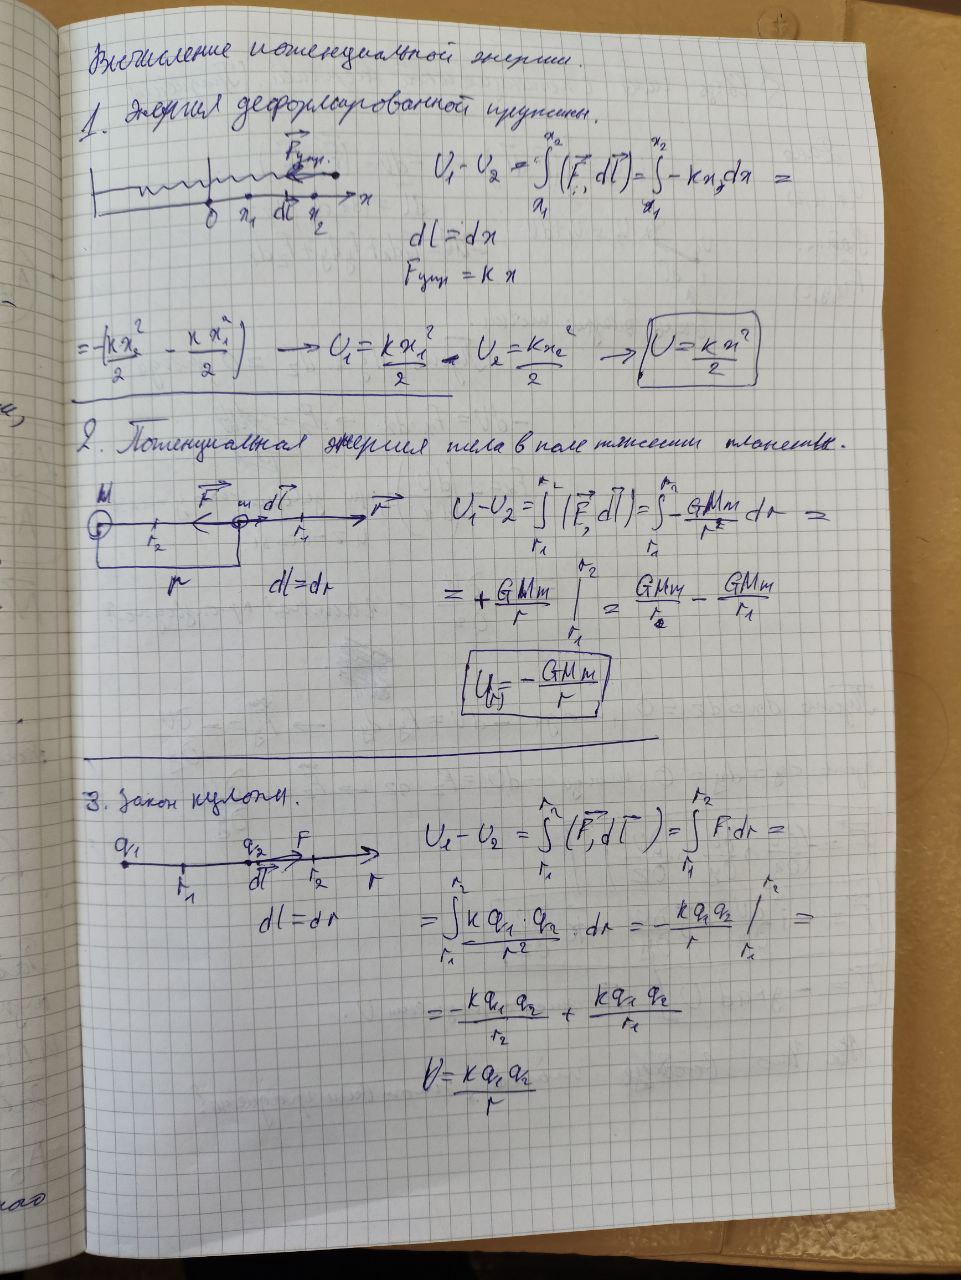 Вычисление потенциальной энергии.
1. Энергия деформированной пружины.
F упр.
0 x₁ dl x₂ x
U₁ - U₂ = ∫_{x₁}^{x₂} (F, dl) = ∫_{x₁}^{x₂} - kx dx =
dl = dx
Fупр = k x
= -(kx₂²/2 - kx₁²/2) → U₁ = kx₁²/2 U₂ = kx₂²/2 → U = kx²/2
2. Потенциальная энергия тела в поле тяжести планеты.
M F m dl r
r₂ r₁
r
dl = dr
U₁ - U₂ = ∫_{r₁}^{r₂} (F, dl) = ∫_{r₁}^{r₂} - GMm/r² dr =
= + GMm/r |_{r₁}^{r₂} = GMm/r₂ - GMm/r₁
U(r) = - GMm/r
3. Закон кулона.
q₁ q₂ F
r₁ dl r₂ r
dl = dr
U₁ - U₂ = ∫_{r₁}^{r₂} (F, dl) = ∫_{r₁}^{r₂} F·dr =
= ∫_{r₁}^{r₂} k q₁·q₂/r² · dr = - kq₁q₂/r |_{r₁}^{r₂} =
= - kq₁q₂/r₂ + kq₁q₂/r₁
U = kq₁q₂/r